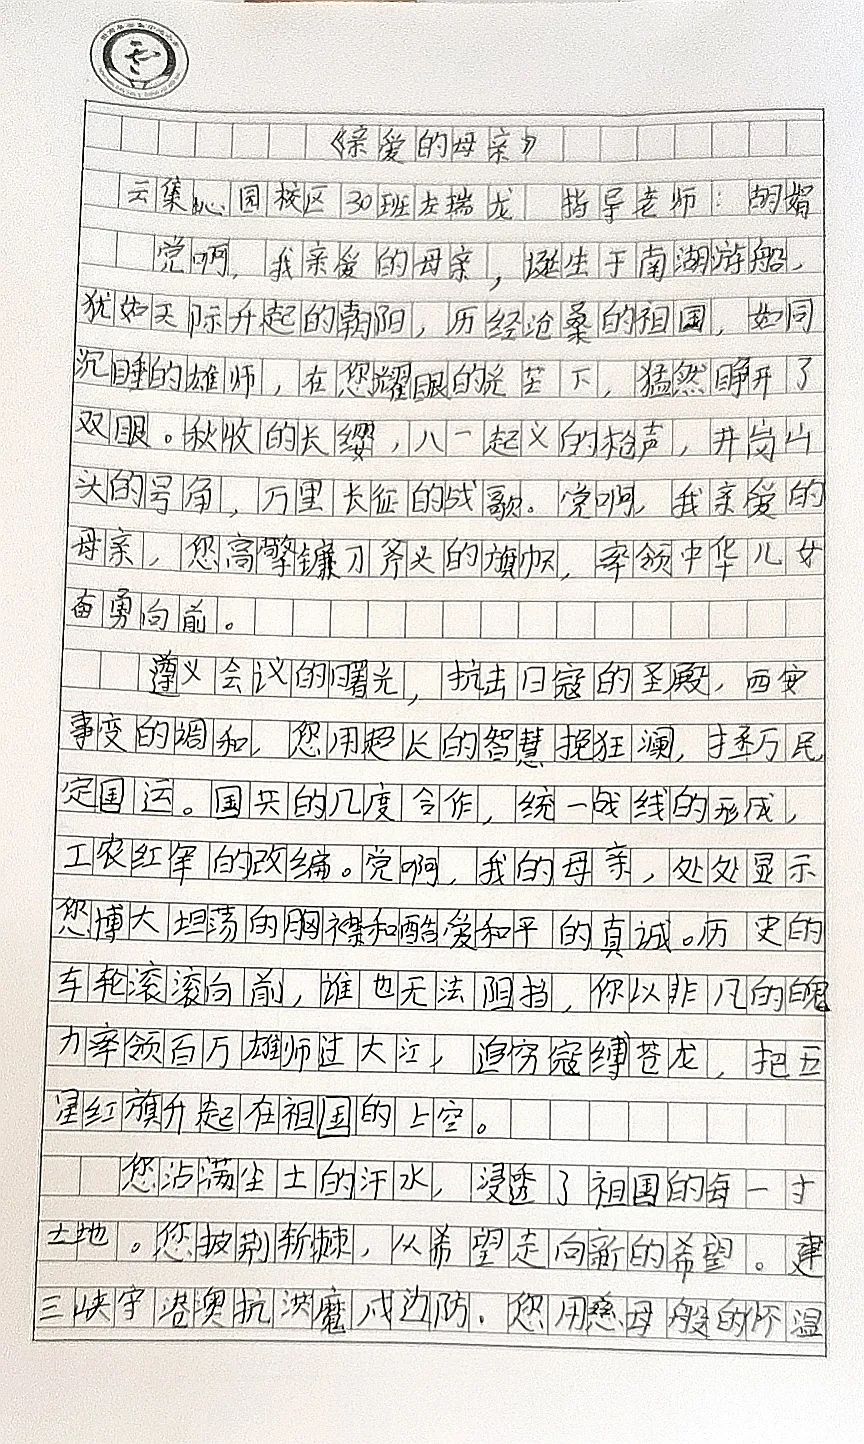 《亲爱的母亲》
云集沁园校区30班左瑞龙 指导老师：胡娟
党啊，我亲爱的母亲，诞生于南湖游船，
犹如天际升起的朝阳，历经沧桑的祖国，如同
沉睡的雄师，在您耀眼的光芒下，猛然睁开了
双眼。秋收的长缨，八一起义的枪声，井岗山
头的号角，万里长征的战歌。党啊，我亲爱的
母亲，您高擎镰刀斧头的旗帜，率领中华儿女
奋勇向前。
遵义会议的曙光，抗击日寇的圣殿，西安
事变的调和，您用超长的智慧挽狂澜，拯万民
定国运。国共的几度合作，统一战线的形成，
工农红军的改编。党啊，我的母亲，处处显示
您博大坦荡的胸襟和酷爱和平的真诚。历史的
车轮滚滚向前，谁也无法阻挡，你以非凡的魄
力率领百万雄师过大江，追穷寇缚苍龙，把五
星红旗升起在祖国的上空。
您沾满尘土的汗水，浸透了祖国的每一寸
土地。您披荆斩棘，从希望走向新的希望。建
三峡守港澳抗洪魔戍边防。您用慈母般的怀温